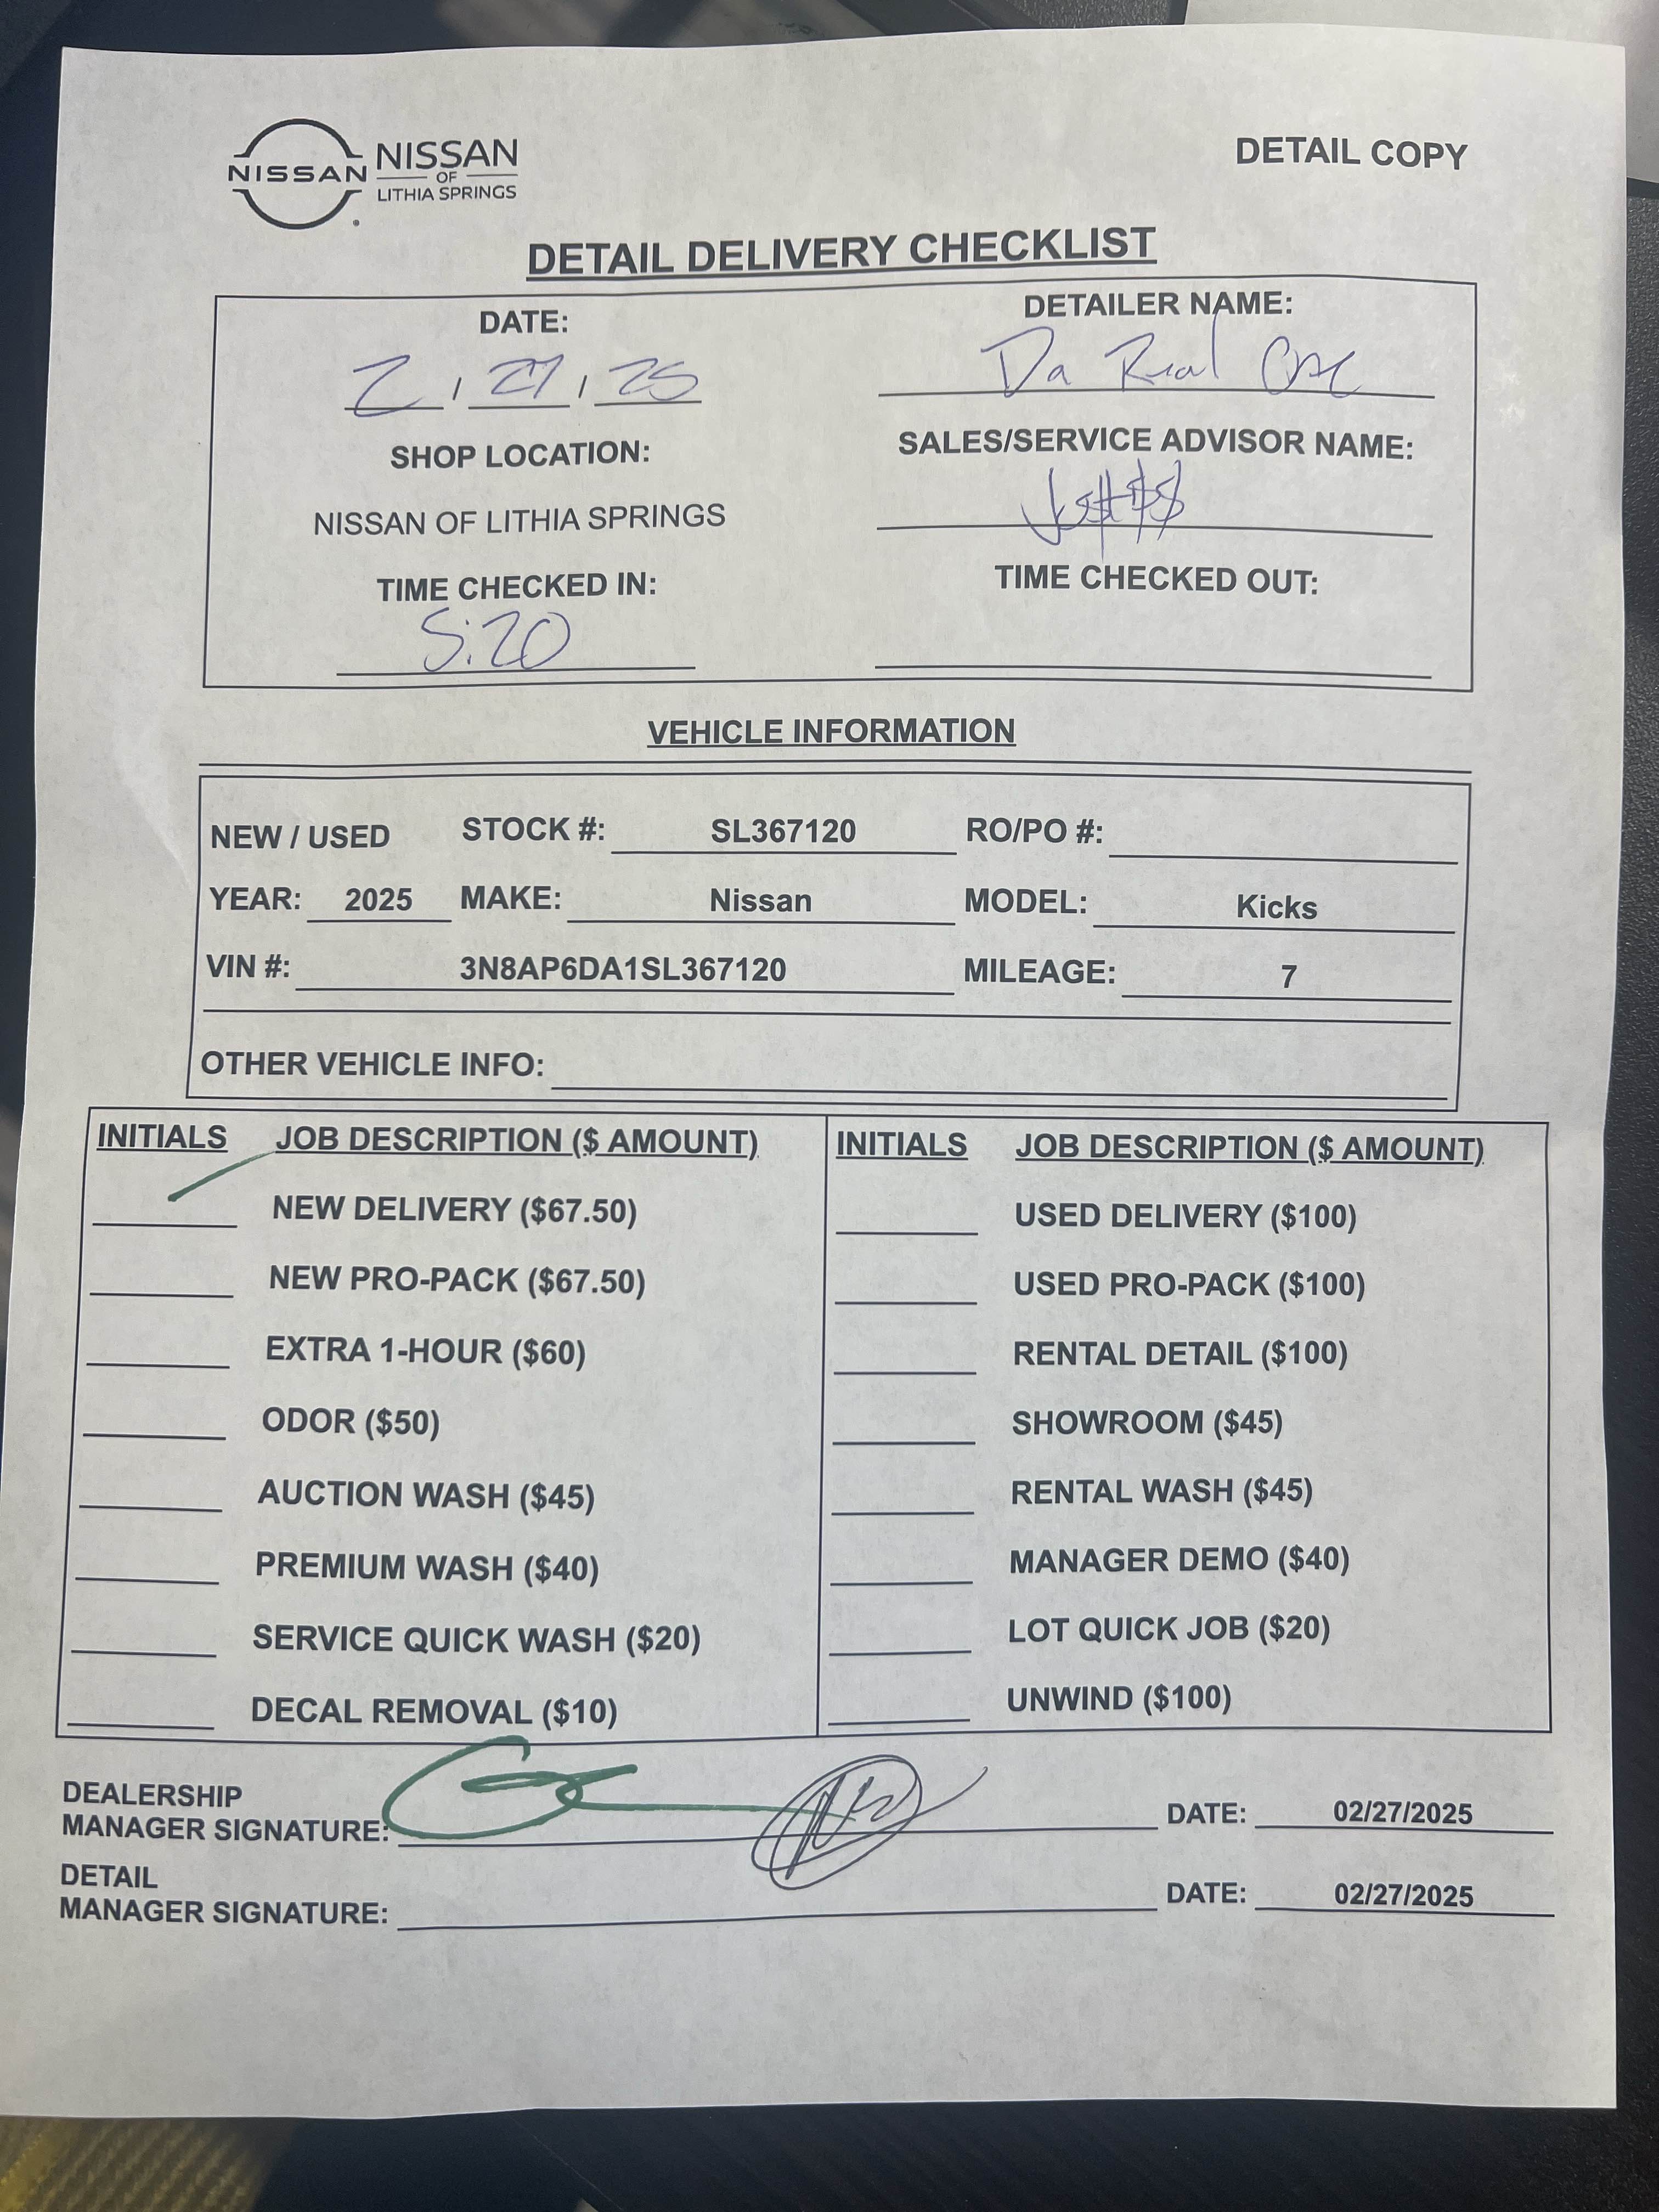 NISSAN
NISSAN
OF
LITHIA SPRINGS
DETAIL COPY
DETAIL DELIVERY CHECKLIST
DATE:
2 / 27 / 25
DETAILER NAME:
Da Real
SHOP LOCATION:
NISSAN OF LITHIA SPRINGS
SALES/SERVICE ADVISOR NAME:
TIME CHECKED IN:
5:20
TIME CHECKED OUT:
VEHICLE INFORMATION
NEW / USED STOCK #: SL367120 RO/PO #:
YEAR: 2025 MAKE: Nissan MODEL: Kicks
VIN #: 3N8AP6DA1SL367120 MILEAGE: 7
OTHER VEHICLE INFO:
INITIALS JOB DESCRIPTION ($ AMOUNT)
NEW DELIVERY ($67.50)
NEW PRO-PACK ($67.50)
EXTRA 1-HOUR ($60)
ODOR ($50)
AUCTION WASH ($45)
PREMIUM WASH ($40)
SERVICE QUICK WASH ($20)
DECAL REMOVAL ($10)
INITIALS JOB DESCRIPTION ($ AMOUNT)
USED DELIVERY ($100)
USED PRO-PACK ($100)
RENTAL DETAIL ($100)
SHOWROOM ($45)
RENTAL WASH ($45)
MANAGER DEMO ($40)
LOT QUICK JOB ($20)
UNWIND ($100)
DEALERSHIP
MANAGER SIGNATURE: DATE: 02/27/2025
DETAIL
MANAGER SIGNATURE: DATE: 02/27/2025